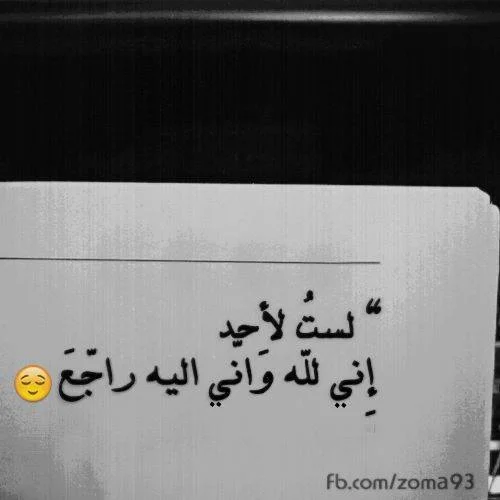 “ لستُ لأحد
إِني للّه وَانّي اليه راجّعَ 😌
Fb.com/zoma93